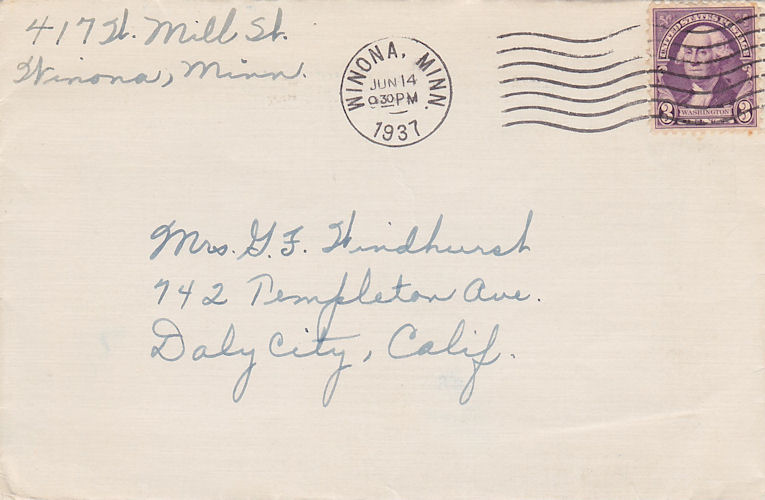 417 W. Mill St.
Winona, Minn.
WINONA, MINN.
JUN 14
9 30 PM
1937
UNITED STATES POSTAGE
3 WASHINGTON 3
Mrs. G. F. Windhurst
742 Templeton Ave.
Daly City, Calif.